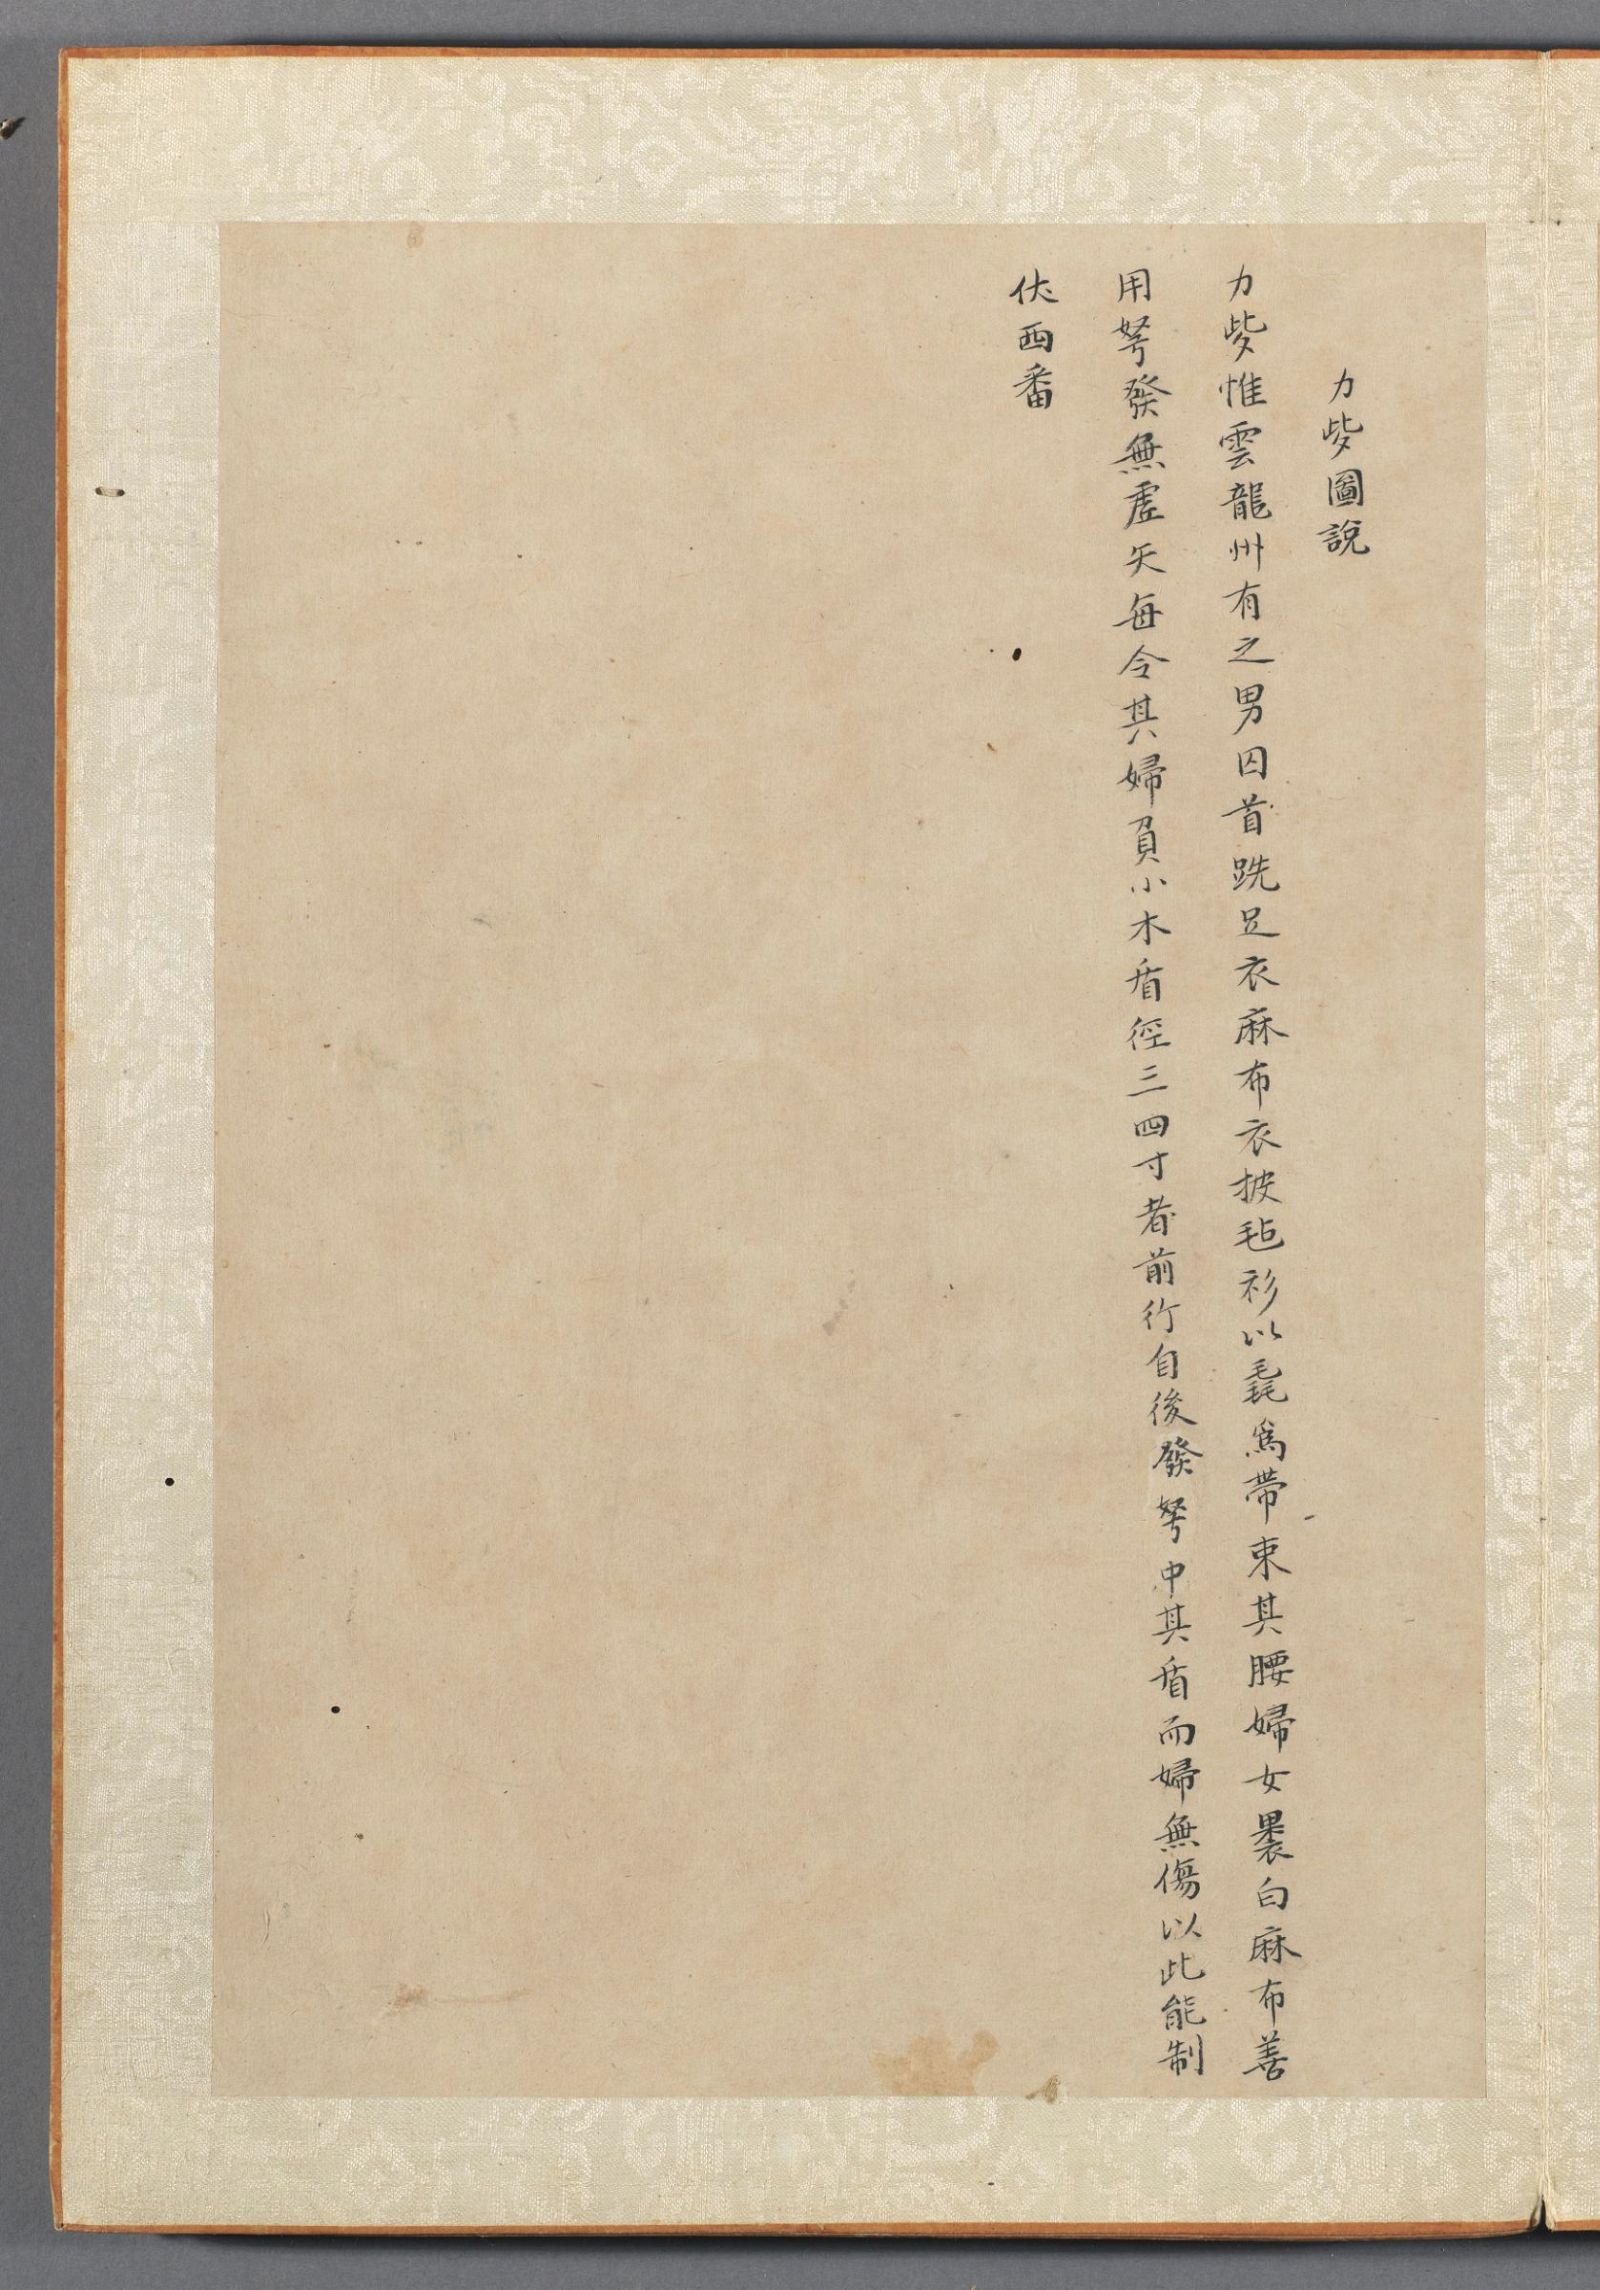 力些圖說
力些惟雲龍州有之男囚首跣足衣麻布衣披毡衫以毳為帶束其腰婦女裹白麻布善
用弩發無虛矢每令其婦負小木盾徑三四寸者前行自後發弩中其盾而婦無傷以此能制
伏西番